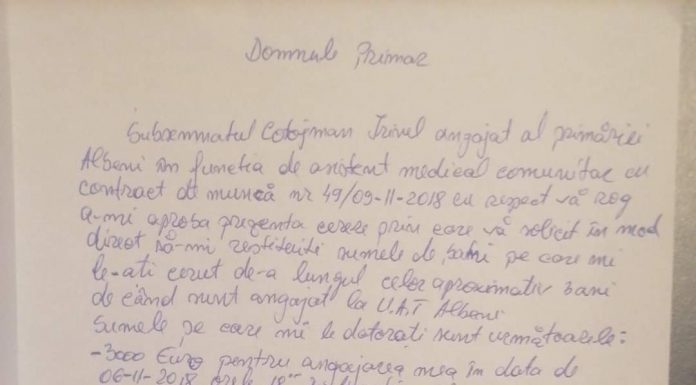 Domnule Primar
Subsemnatul Cotojman Irinel angajat al primăriei
Albeni în functia de asistent medical comunitar cu
contract de muncă nr 49/09-11-2018 cu respect vă rog
a-mi aproba prezenta cerere prin care vă solicit în mod
direct să-mi restituiti sumele de bani pe care mi
le-ati cerut de-a lungul celor aproximativ 3 ani
de când sunt angajat la U.A.T Albeni
Sumele pe care mi le datorați sunt următoarele:
-3000 Euro pentru angajarea mea în data de
06-11-2018 orele